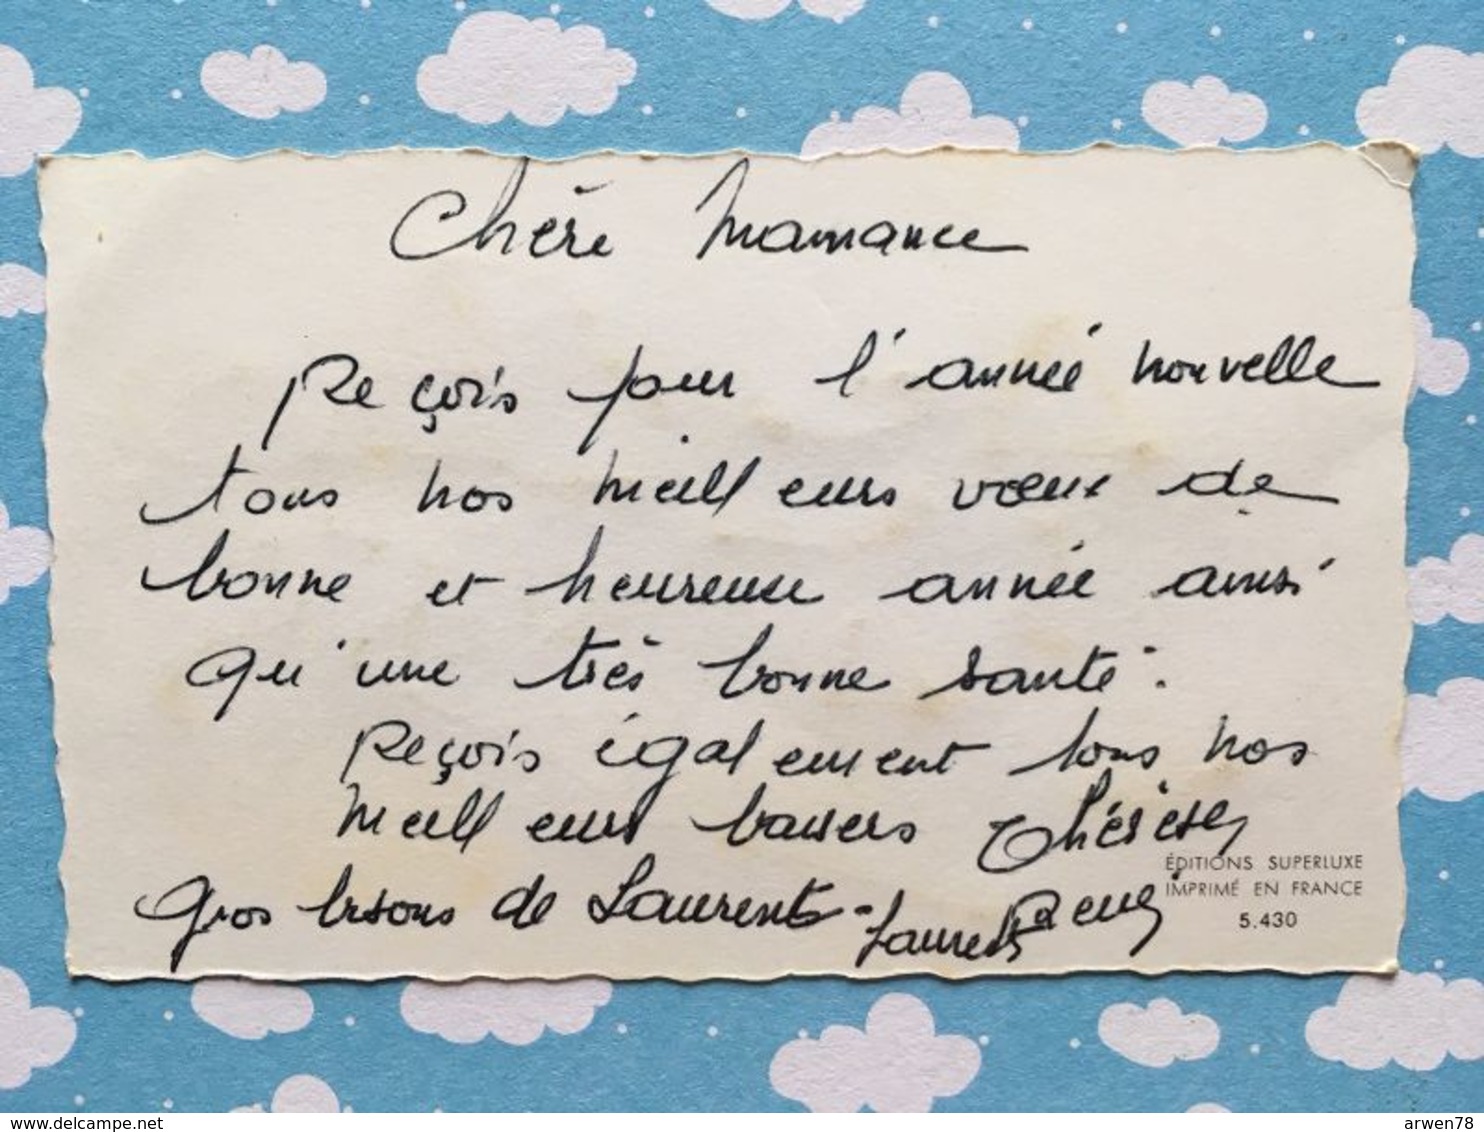 Chère Mamance
Reçois pour l'année nouvelle
tous nos meilleurs vœux de
bonne et heureuse année ainsi
qu'une très bonne santé.
Reçois également tous nos
meilleurs baisers Thérèse
ÉDITIONS SUPERLUXE
IMPRIMÉ EN FRANCE
5.430
Gros bisous de Laurent - Laurent René
delcampe.net
arwen78